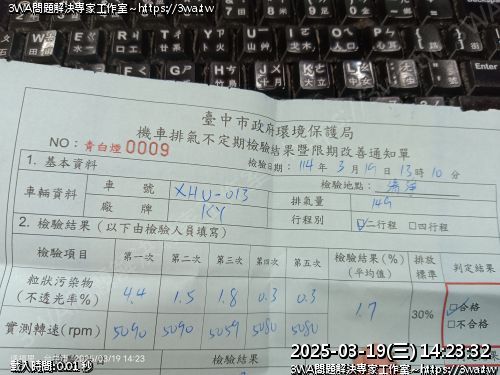 3WA問題解決專家工作室~https://3wa.tw
臺中市政府環境保護局
機車排氣不定期檢驗結果暨限期改善通知單
NO：青白煙0009
檢驗日期：114年3月19日13時10分
1. 基本資料
檢驗地點：
車輛資料 車號 XHU-013 排氣量 149
廠牌 KY 行程別 ☑二行程 □四行程
2. 檢驗結果（以下由檢驗人員填寫）
檢驗項目 第一次 第二次 第三次 第四次 第五次 檢驗結果(%)(平均值) 排放標準 判定結果
粒狀污染物(不透光率%) 4.4 1.5 1.8 0.3 0.3 1.7 30% □合格 □不合格
實測轉速(rpm) 5090 5090 5059 5080 5080
2025/03/19 14:23
2025-03-19(三) 14:23:32
載入時間:0.01秒
檢驗結果
3WA問題解決專家工作室~https://3wa.tw